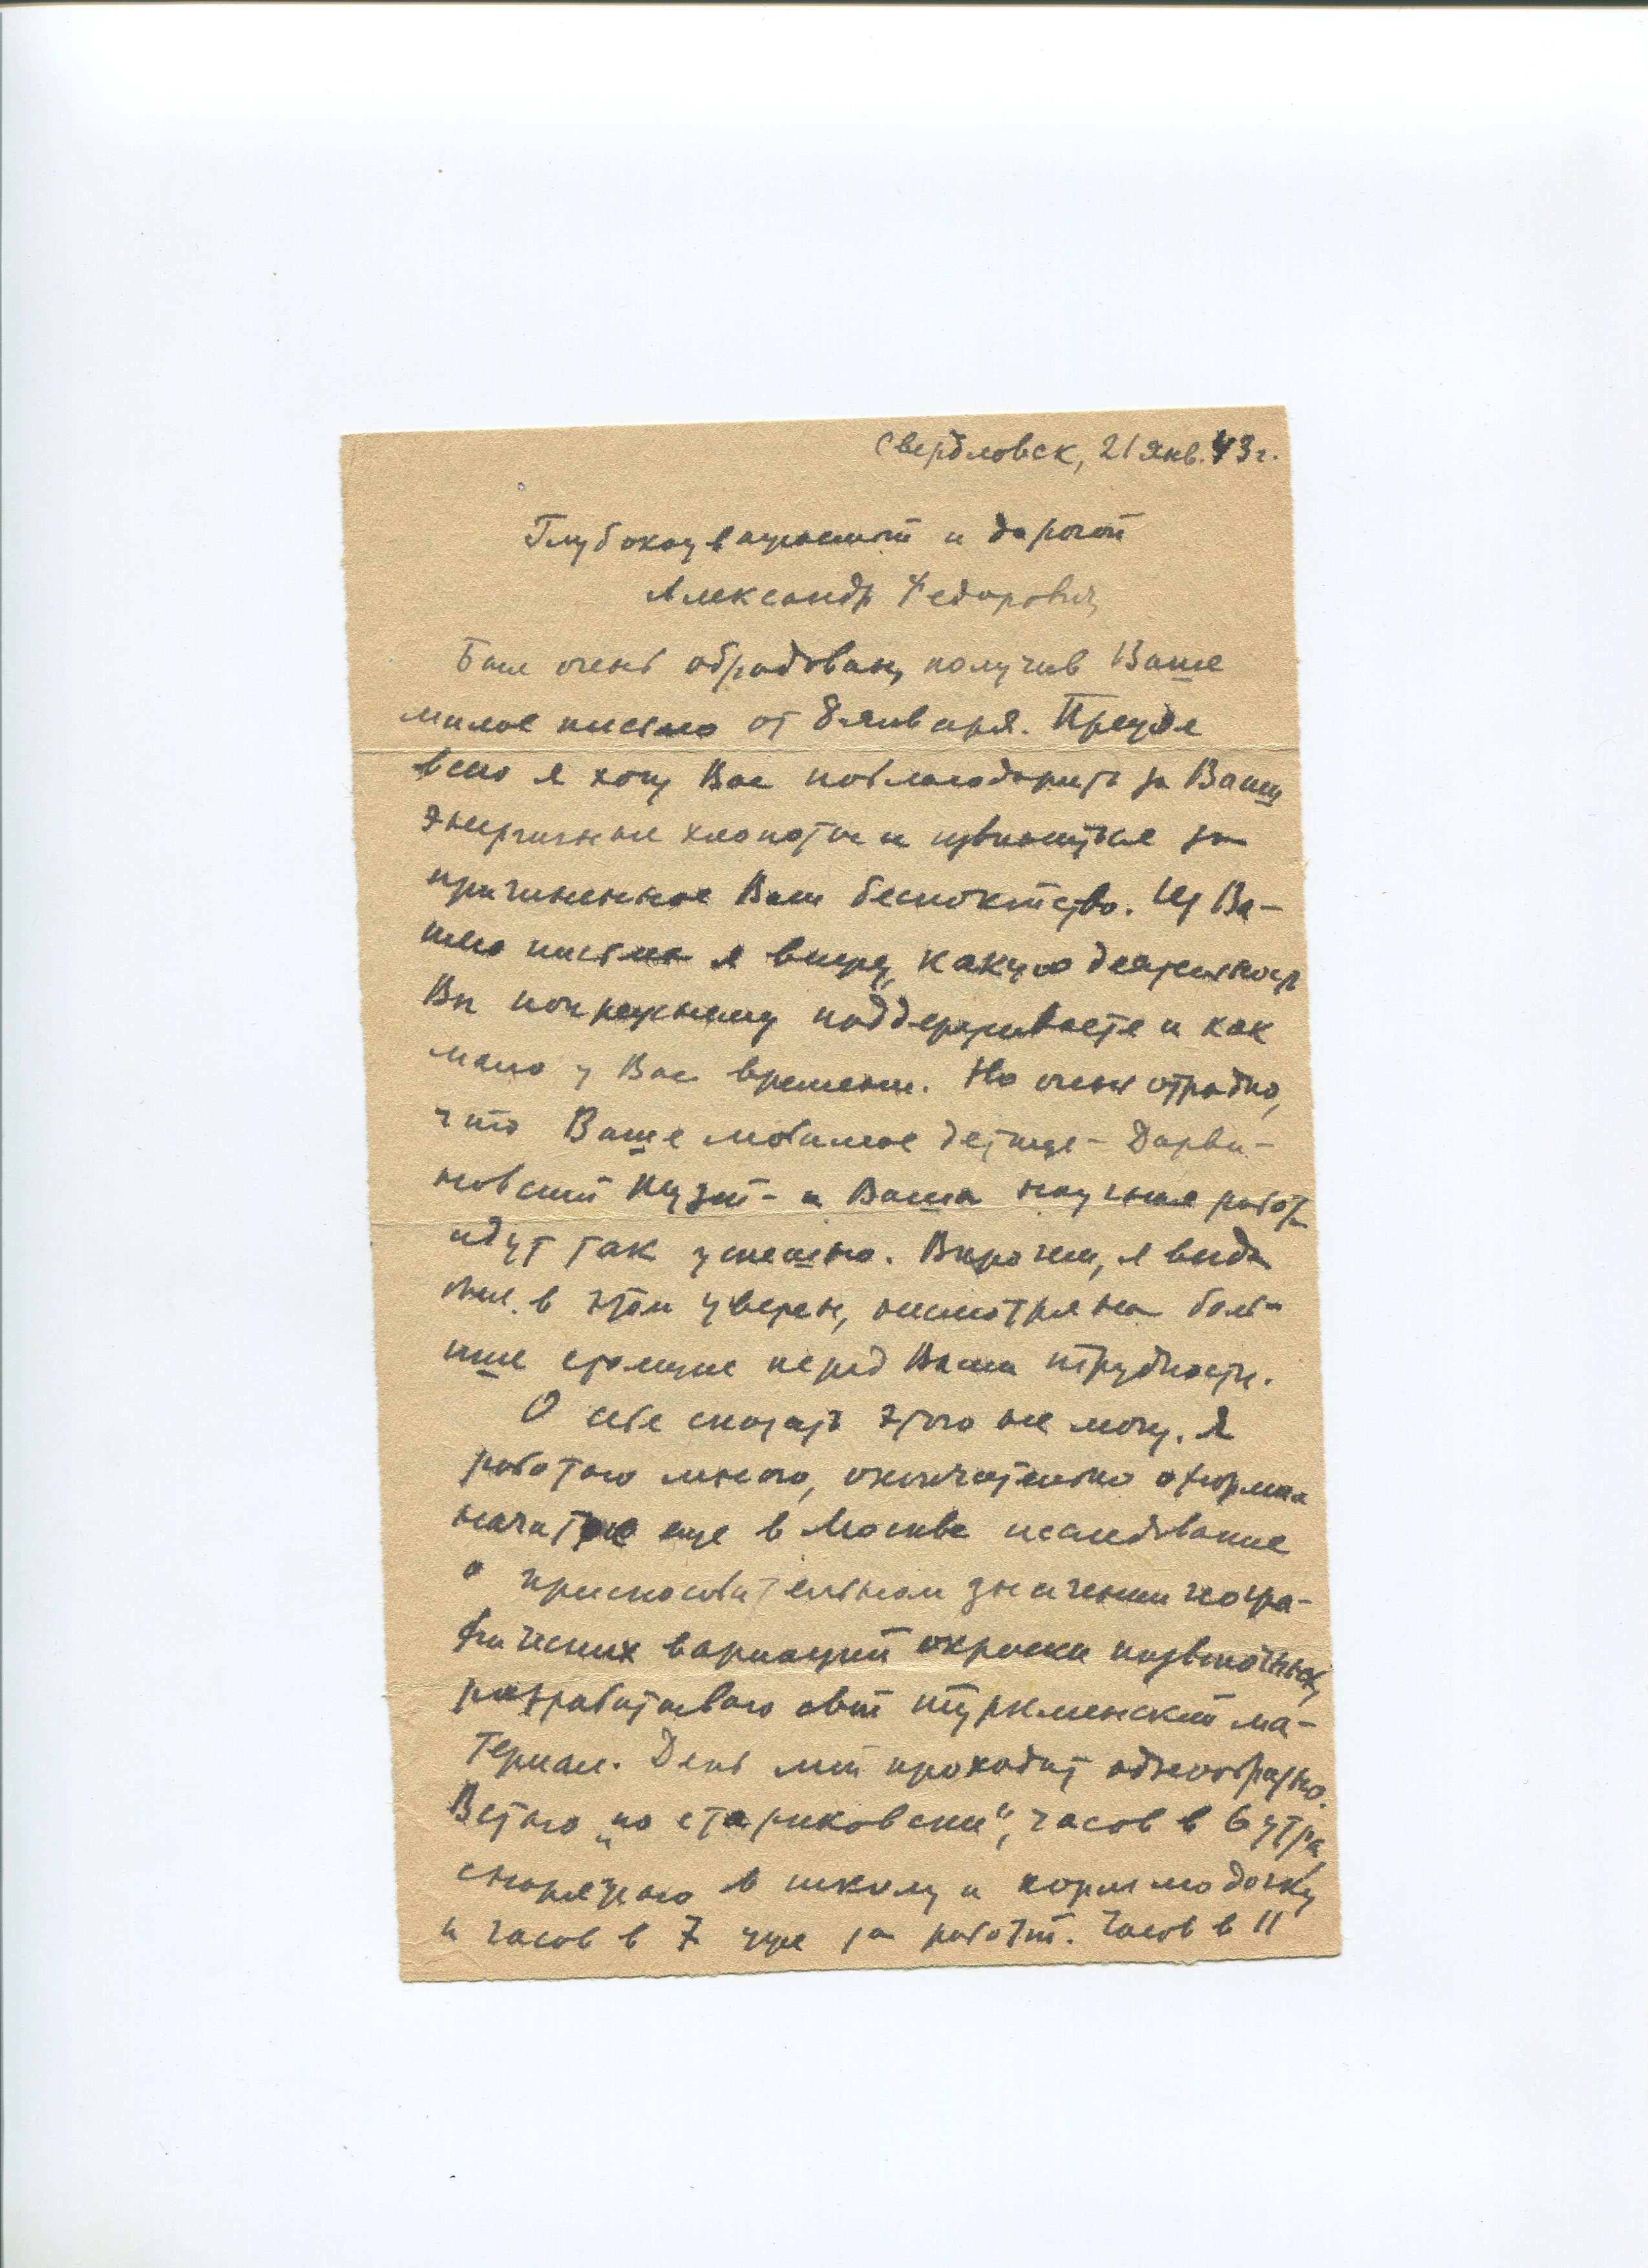 Свердловск, 21 янв. 43 г.
Глубокоуважаемый и дорогой
Александр Федорович
Был очень обрадован, получив Ваше
милое письмо от 8 января. Прежде
всего я хочу Вас поблагодарить за Ваши
энергичные хлопоты и извиниться за
причиненное Вам беспокойство. Из Ва-
шего письма я вижу, какую деятельность
Вы по прежнему поддерживаете и как
мало у Вас времени. Но очень отрадно,
что Ваше любимое детище - Дарви-
новский музей - и Ваша научная работа
идут так успешно. Впрочем, я всегда
был в этом уверен, несмотря на боль-
шие стоящие перед Вами трудности.
О себе сказать этого не могу. Я
работаю много, окончательно оформил
начатое еще в Москве исследование
о приспособительном значении геогра-
фических вариаций окраски позвоночных,
разрабатываю свой туркменский ма-
териал. День мой проходит однообразно.
Встаю „по стариковски“, часов в 6 утра,
снаряжаю в школу и кормлю дочку
и часов в 7 уже за работой. Часов в 11